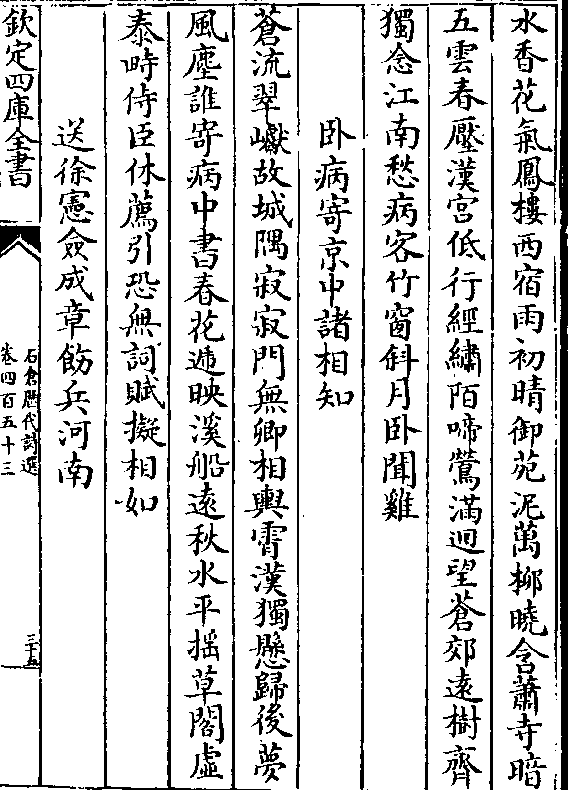 水香花氣鳳樓西宿雨初晴御苑泥萬柳曉含蕭寺暗
五雲春壓漢宫低行經繡陌啼鶯滿迥望蒼郊遠樹齊
獨念江南愁病客竹窗斜月卧聞雞
卧病寄京中諸相知
蒼流翠巘故城隅寂寂門無卿相輿霄漢獨懸歸後夢
風塵誰寄病中書春花遞映溪船遠秋水平揺草閣虚
泰畤侍臣休薦引恐無詞賦擬相如
送徐憲僉成章飭兵河南
欽定四庫全書
石倉歴代詩選
卷四百五十三
三十五